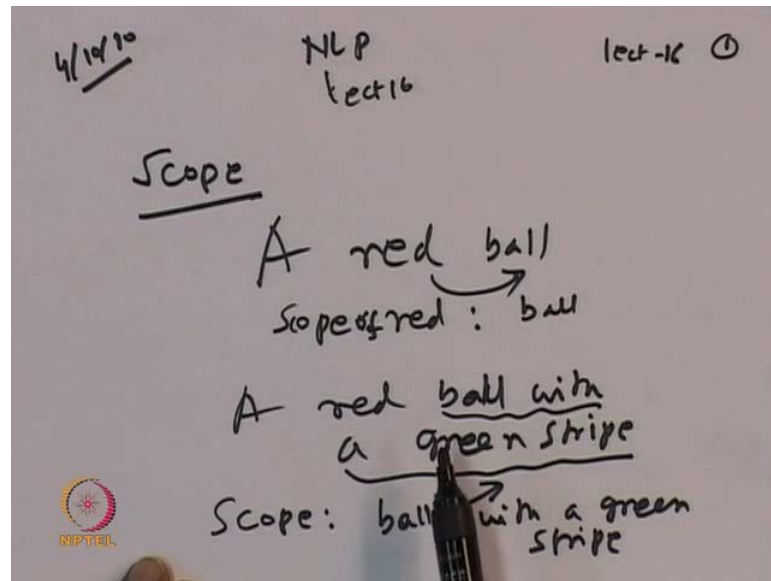 4/10/10 NLP lect-16 1
Lect 16
Scope
A red ball
Scope of red : ball
A red ball with
a green stripe
Scope: ball with a green
stripe
NPTEL